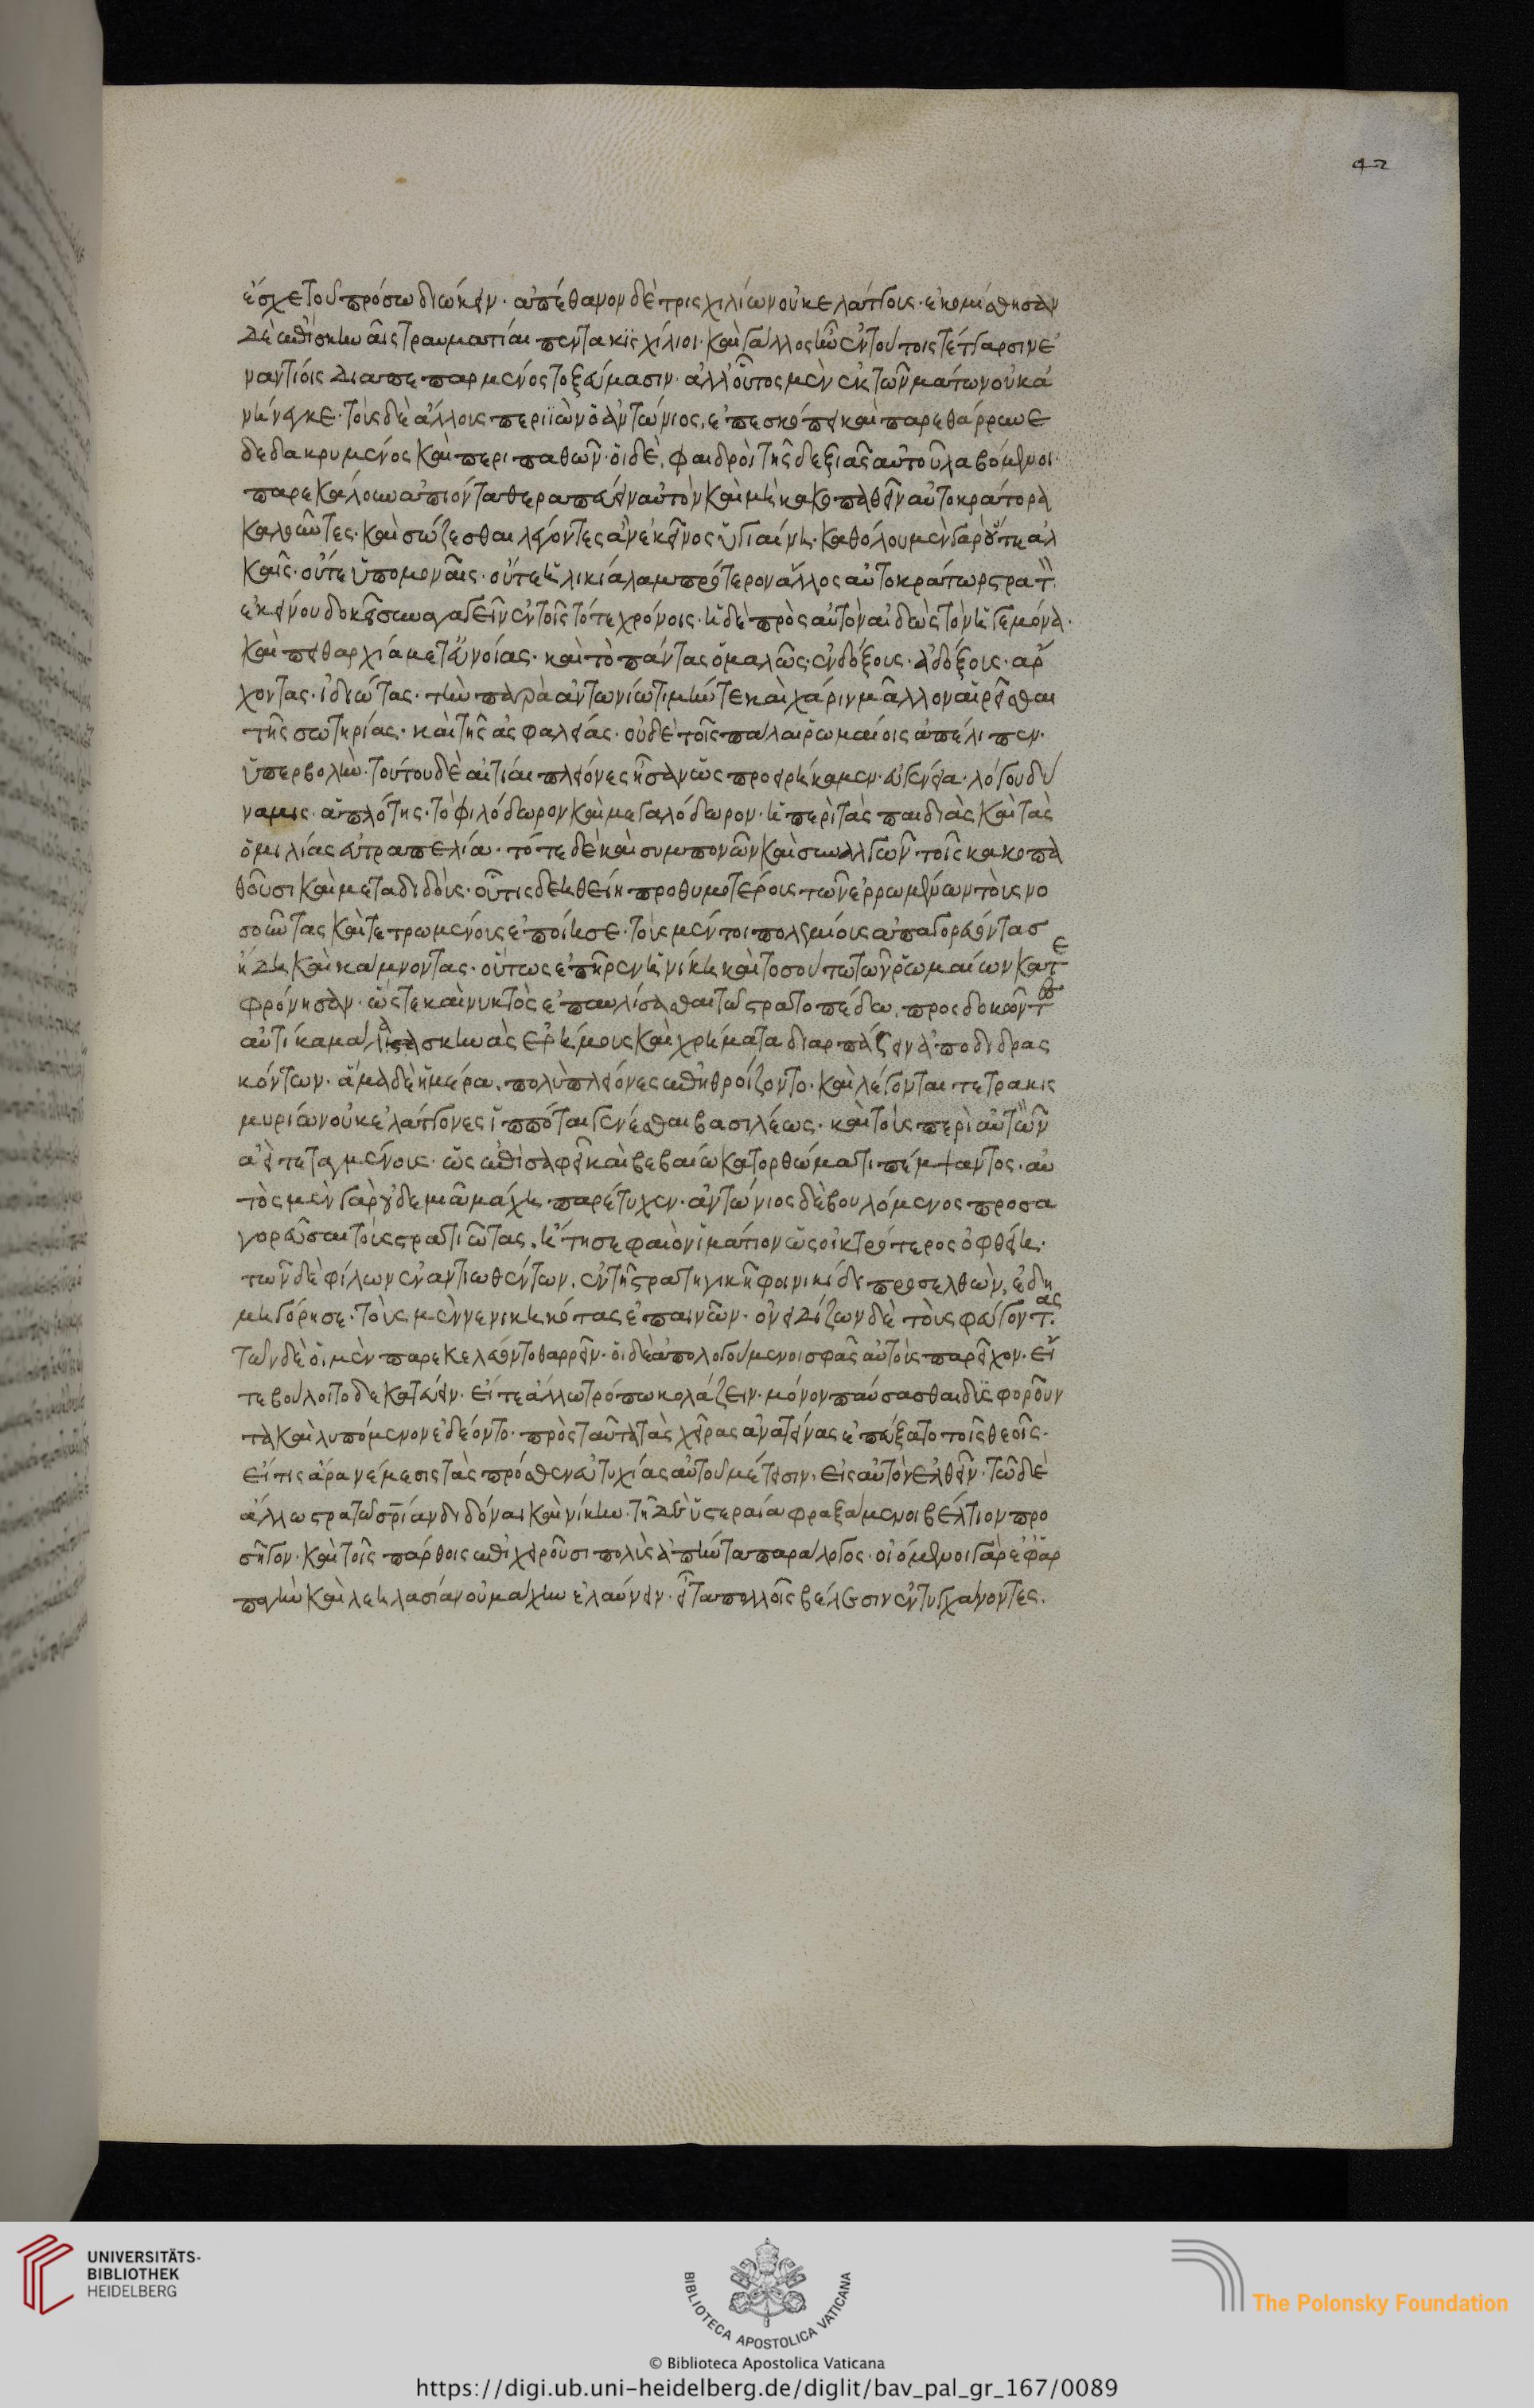 42
ἔσχε τοῦ πρόσω διώκειν· ἀπέθανον δὲ τρισχιλίων οὐκ ἐλάττους· ἐκομίσθησαν
δὲ ἐπὶ σκηνὰς τραυματίαι πεντακισχίλιοι· καὶ γάλλος ἦν ἐν τούτοις τέτταρσιν ἐ
ναντίοις διαπεπαρμένος τοξεύμασιν· ἀλλ' οὗτος μὲν ἐκ τῶν τραυμάτων οὐκ ἀ
νήνεγκε· τοὺς δὲ ἄλλους περιϊὼν ὁ ἀντώνιος, ἐπεσκόπει καὶ παρεθάρρυνε
δεδακρυμένος καὶ περιπαθῶν· οἱ δὲ, φαιδροὶ τῆς δεξιᾶς αὐτοῦ λαβόμενοι·
παρεκάλουν ἀπιόντα θεραπεύειν αὑτὸν καὶ μὴ κακοπαθεῖν αὐτοκράτορα
καλοῦντες· καὶ σώζεσθαι λέγοντες ἂν ἐκεῖνος ὑγιαίνη· καθόλου μὲν γὰρ οὔτ' ἀλ
καῖς· οὔτε ὑπομοναῖς· οὔτε ἡλικία λαμπρότερον ἄλλος αὐτοκράτωρ στρατὸν
ἐκείνου δοκεῖ συναγαγεῖν ἐν τοῖς τότε χρόνοις· ἡ δὲ πρὸς αὐτὸν αἰδὼς τὸν ἡγεμόνα·
καὶ πειθαρχία μετ' εὐνοίας· καὶ τὸ πάντας ὁμαλῶς· ἐνδόξους· ἀδόξους· ἄρ
χοντας· ἰδιώτας· τὴν παρὰ ἀντωνίω τιμήν τε καὶ χάριν μᾶλλον αἱρεῖσθαι
τῆς σωτηρίας· καὶ τῆς ἀσφαλείας· οὐδὲ τοῖς πάλαι ῥωμαίοις ἀπέλιπεν·
ὑπερβολήν· τούτου δὲ αἰτίαι πλείονες ἦσαν ὡς προειρήκαμεν· εὐγένεια· λόγου δύ
ναμις· ἁπλότης· τὸ φιλόδωρον καὶ μεγαλόδωρον· ἡ περὶ τὰς παιδιὰς καὶ τὰς
ὁμιλίας εὐτραπελία· τότε δὲ καὶ συμπονῶν καὶ συναλγῶν τοῖς κακοπα
θοῦσι καὶ μεταδιδοὺς· οὗ τις δεηθείη προθυμοτέρους τῶν ἐρρωμένων τοὺς νο
σοῦντας καὶ τετρωμένους ἐποίησε· τοὺς μέντοι πολεμίους ἀπαγορεύοντας
ἤδη καὶ κάμνοντας· οὕτως ἐπῆρεν ἡ νίκη καὶ τοσοῦτο τῶν ῥωμαίων κατε
φρόνησαν· ὥστε καὶ νυκτὸς ἐπαυλίσασθαι τῷ στρατοπέδω, προσδοκῶντες
αὐτίκα μάλα σκηνὰς ἐρήμους καὶ χρήματα διαρπάζειν ἀποδιδρασ
κόντων· ἅμα δὲ ἡμέρα, πολὺ πλείονες ἐπηθροίζοντο· καὶ λέγονται τετρακισ
μυρίων οὐκ ἐλάττονες ἱππόται γενέσθαι βασιλέως· καὶ τοὺς περὶ αὐτὸν
ἀεὶ τεταγμένους· ὡς ἐπὶ σαφεῖ καὶ βεβαίω κατορθώματι πέμψαντος· αὐ
τὸς μὲν γὰρ οὐδεμιᾶ μάχη παρέτυχεν· ἀντώνιος δὲ βουλόμενος προσα
γορεῦσαι τοὺς στρατιώτας, ἤτησε φαιὸν ἱμάτιον ὡς οἰκτρότερος ὀφθείη·
τῶν δὲ φίλων ἐναντιωθέντων, ἐν τῆ στρατηγικῆ φοινικίδι προσελθὼν, ἐδη
μηγόρησε· τοὺς μὲν νενικηκότας ἐπαινῶν· ὀνειδίζων δὲ τοὺς φυγόντας·
τῶν δὲ οἱ μὲν παρεκελεύοντο θαρρεῖν· οἱ δὲ ἀπολογούμενοι σφᾶς αὐτοὺς παρεῖχον· εἴ
τε βούλοιτο δεκατεύειν· εἴτε ἄλλω τρόπω κολάζειν· μόνον παύσασθαι δυσφοροῦν
τα καὶ λυπούμενον ἐδέοντο· πρὸς ταῦτα τὰς χεῖρας ἀνατείνας ἐπεύξατο τοῖς θεοῖς·
εἴ τις ἄρα νέμεσις τὰς πρόσθεν εὐτυχίας αὐτοῦ μέτεισιν, εἰς αὐτὸν ἐλθεῖν· τῶ δὲ
ἄλλω στρατῶ σρίαν διδόναι καὶ νίκην· τῆ δ' ὑστεραία φραξάμενοι βέλτιον προ
σῆγον· καὶ τοῖς πάρθοις ἐπιχειροῦσι πολὺς ἀπήντα παράλογος· οἰόμενοι γὰρ ἐφ' ἁρ
παγὴν καὶ λεηλασίαν οὐ μάχην ἐλαύνειν· εἶτα πολλοῖς βέλεσιν ἐντυγχάνοντες·
UNIVERSITÄTS-
BIBLIOTHEK
HEIDELBERG
BIBLIOTECA APOSTOLICA VATICANA
The Polonsky Foundation
© Biblioteca Apostolica Vaticana
https://digi.ub.uni-heidelberg.de/diglit/bav_pal_gr_167/0089